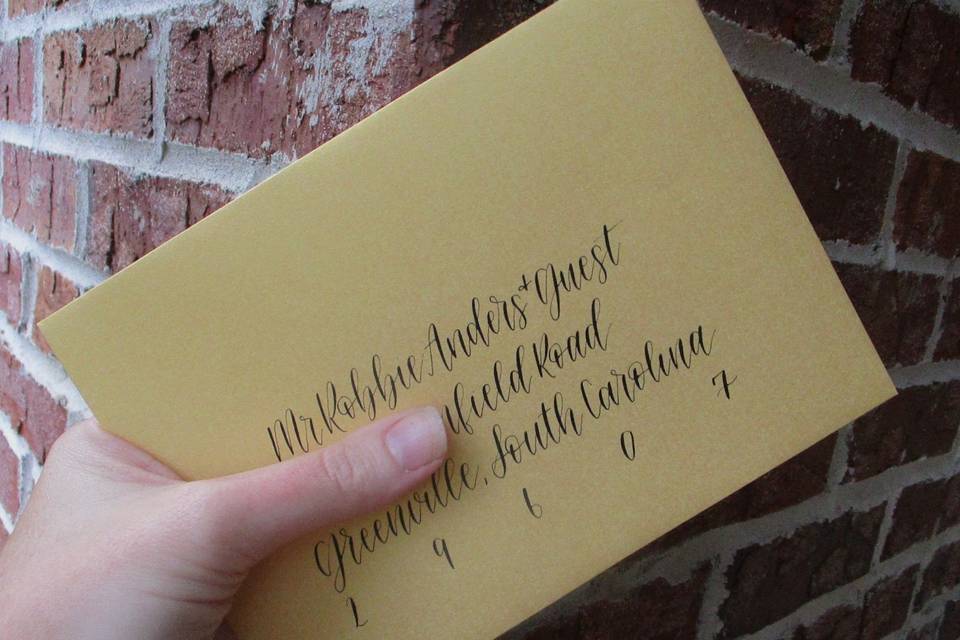 Mr Robbie Anders + Guest
nfield Road
Greenville, South Carolina
2 9 6 0 7